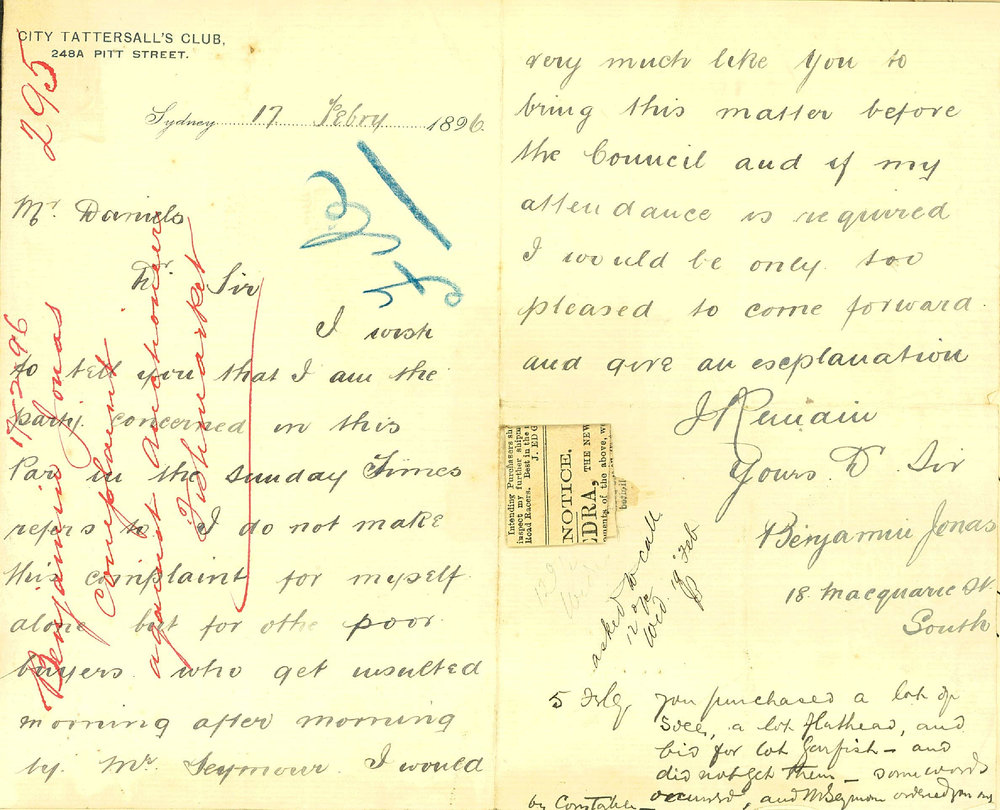 CITY TATTERSALL'S CLUB,
248A PITT STREET.
295
Sydney 17 Febry 1896
Mr. Daniels
Dr. Sir
I wish
to tell you that I am the
party concerned in this
Par in the Sunday Times
refers to. I do not make
this complaint for myself
alone but for othe poor
buyers who get insulted
morning after morning
by Mr. Seymour. I would
17-2-96
Benjamin Jonas
Complaint
against Auctioneers
Fishmarket
very much like you to
bring this matter before
the Council and if my
attendance is required
I would be only too
pleased to come forward
and give an explanation
I Remain
Yours Dr. Sir
Benjamin Jonas
18 Macquarie St
South
Intending Purchasers sh
inspect my further shipm
Road Racers. Best in the
J. ED G
NOTICE.
EDRA, THE NEW
ments of the above, w
asked to call
Wed. 19 Feb
5 you purchased a lot of
Soles, a lot flathead, and
bid for lot Garfish - and
did not get them - some words
occurred, and Mr Seymour ordered
by Constable